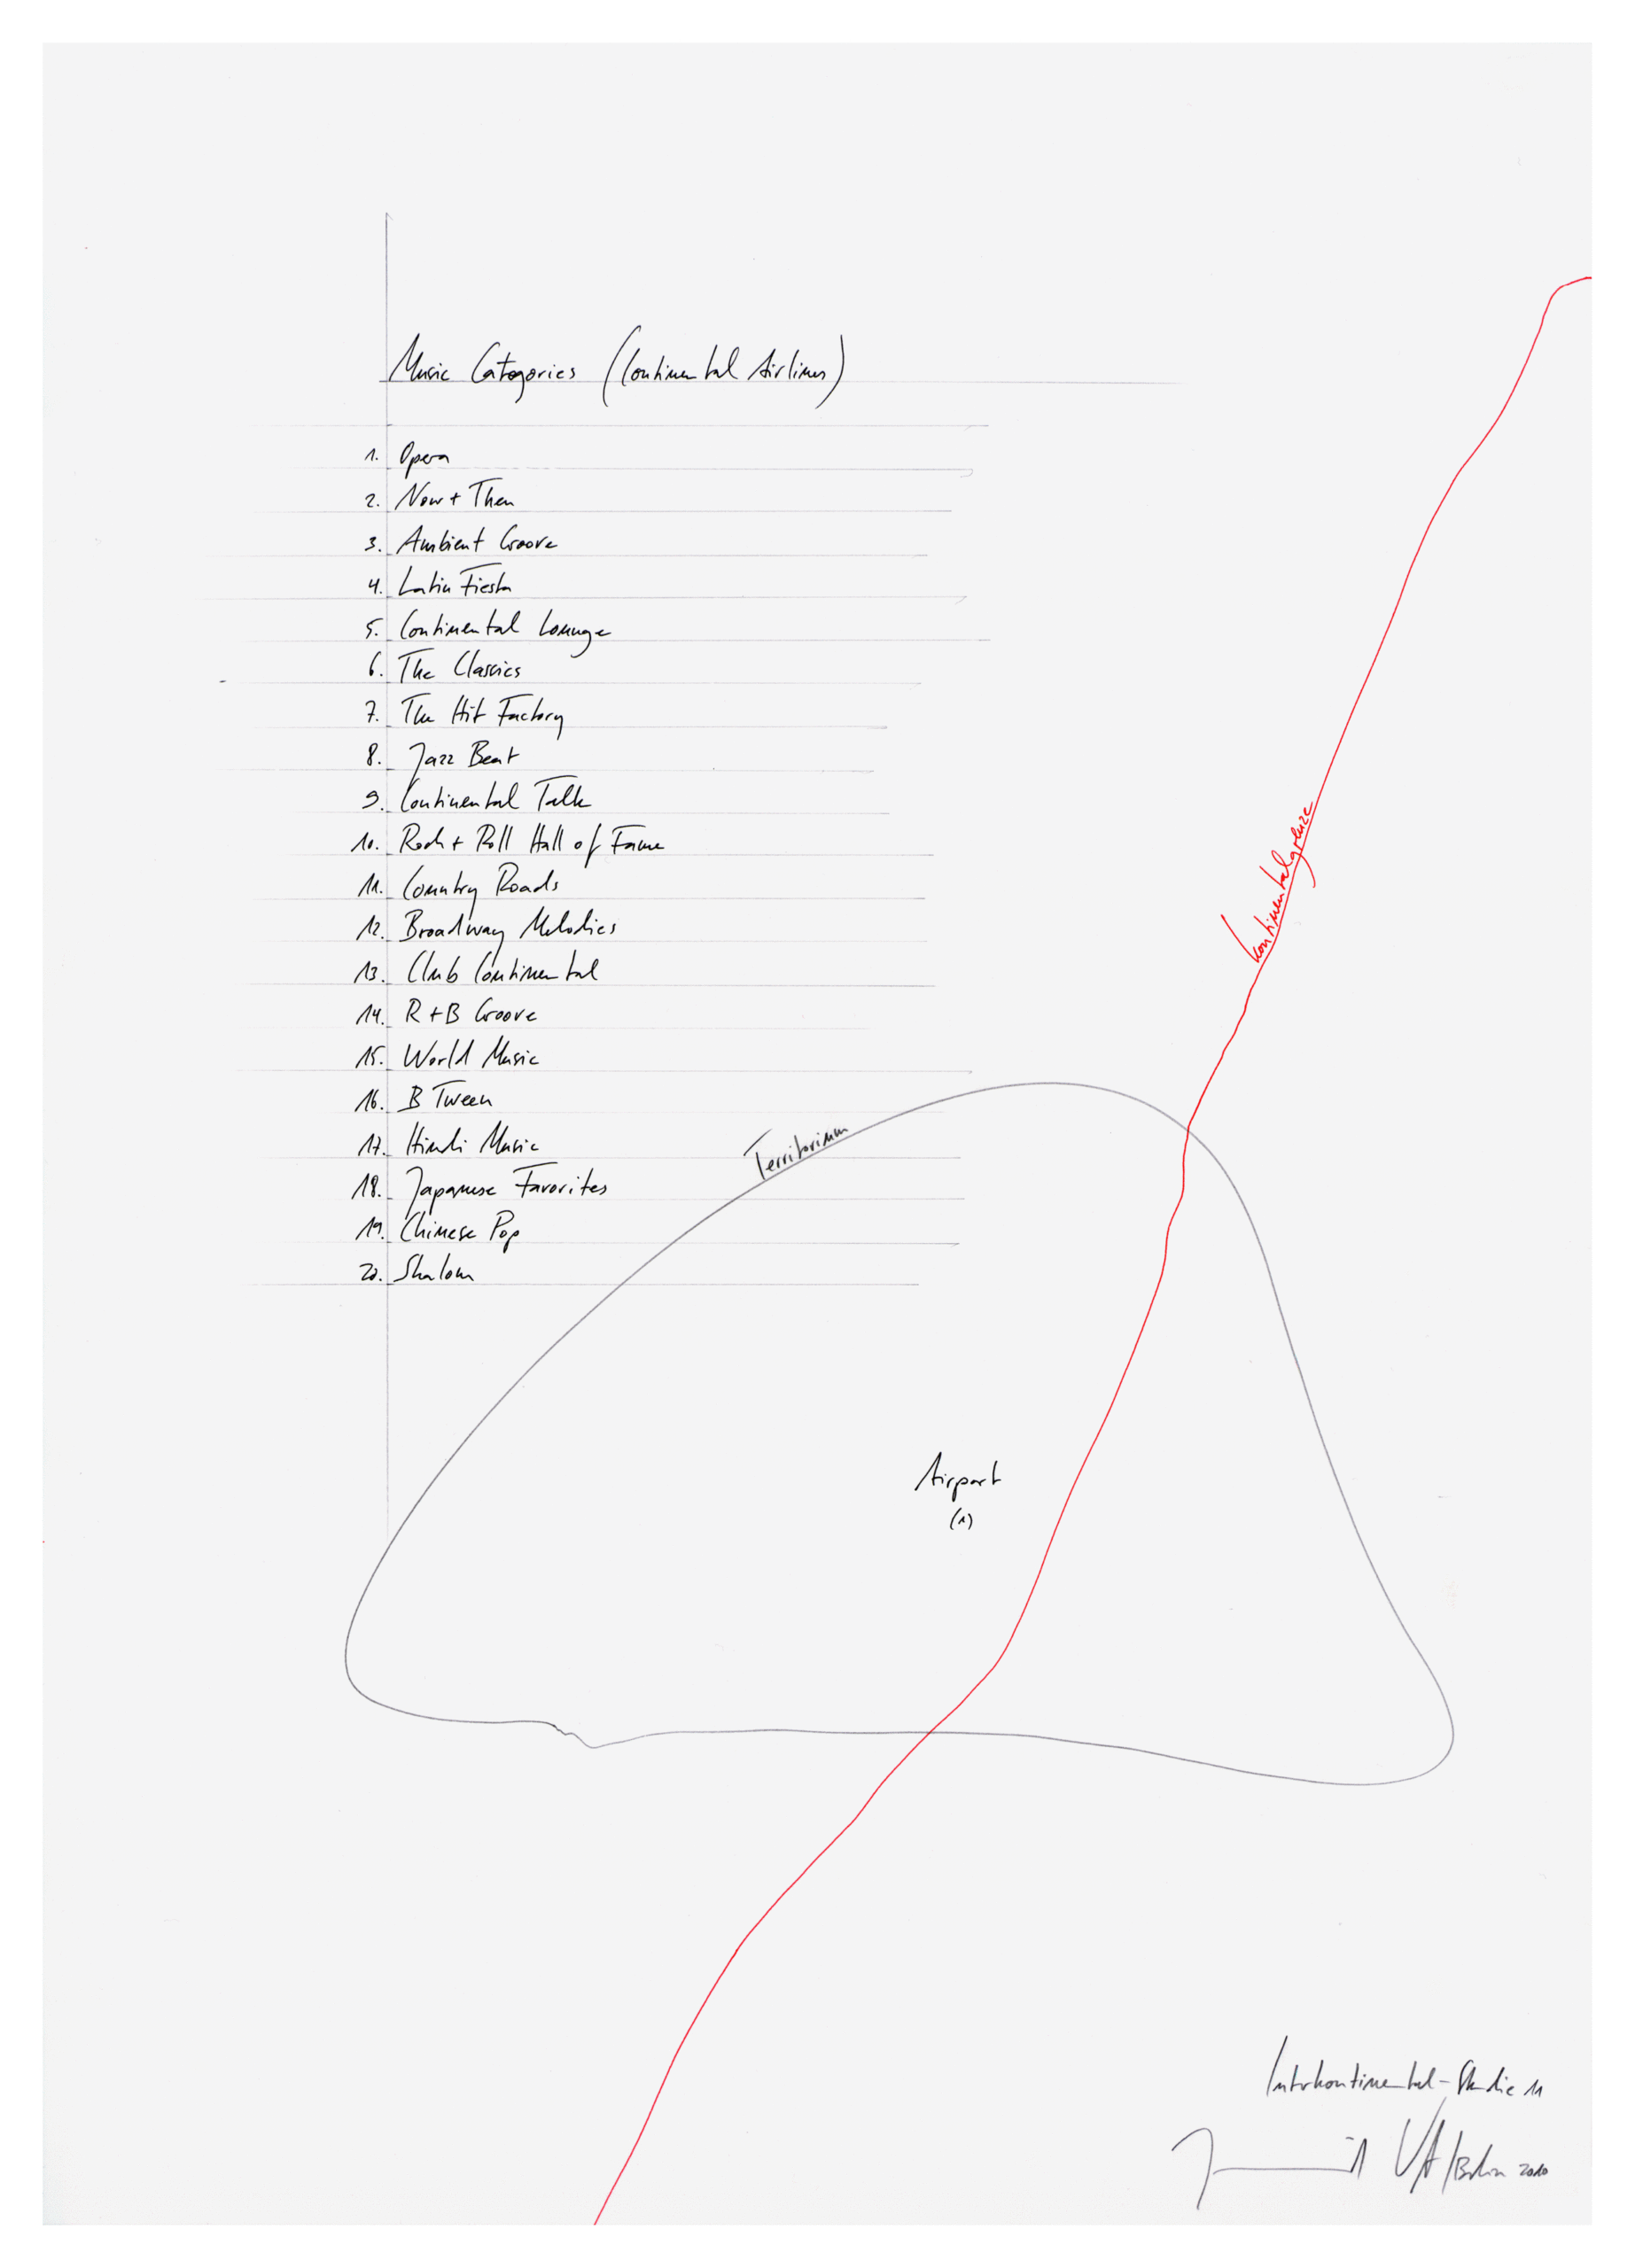 Music Categories (Continental Airlines)
1. Opera
2. Now + Then
3. Ambient Groove
4. Latin Fiesta
5. Continental Lounge
6. The Classics
7. The Hit Factory
8. Jazz Beat
9. Continental Talk
10. Rock + Roll Hall of Fame
11. Country Roads
12. Broadway Melodies
13. Club Continental
14. R + B Groove
15. World Music
16. B Tween
17. Hindi Music
18. Japanese Favorites
19. Chinese Pop
20. Shalom
Kontinentalgrenze
Territorium
Airport
(1)
Interkontinental-Studie 11
/Berlin 2010